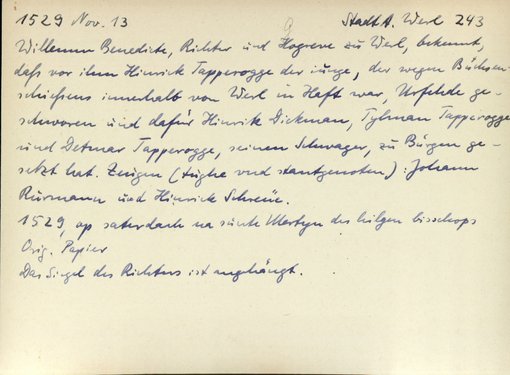 1529 Nov. 13 Stadt A. Werl 243
Willemm Benedicte, Richter und Gogreve zu Werl, bekennt,
daß vor ihm Hinrick Tapperogge der junge, der wegen Büchsen-
schießens innerhalb von Werl in Haft war, Urfehde ge-
schworen und dafür Hinrik Dickman, Tylman Tapperogge
und Detmar Tapperogge, seinen Schwager, zu Bürgen ge-
setzt hat. Zeugen (tughe vnd stantgenoten): Johann
Rurmann und Hinrick Schreue.
1529, op saterdach na sünte Mertyn des hilgen bisschops
Orig. Papier
Das Siegel des Richters ist angehängt.